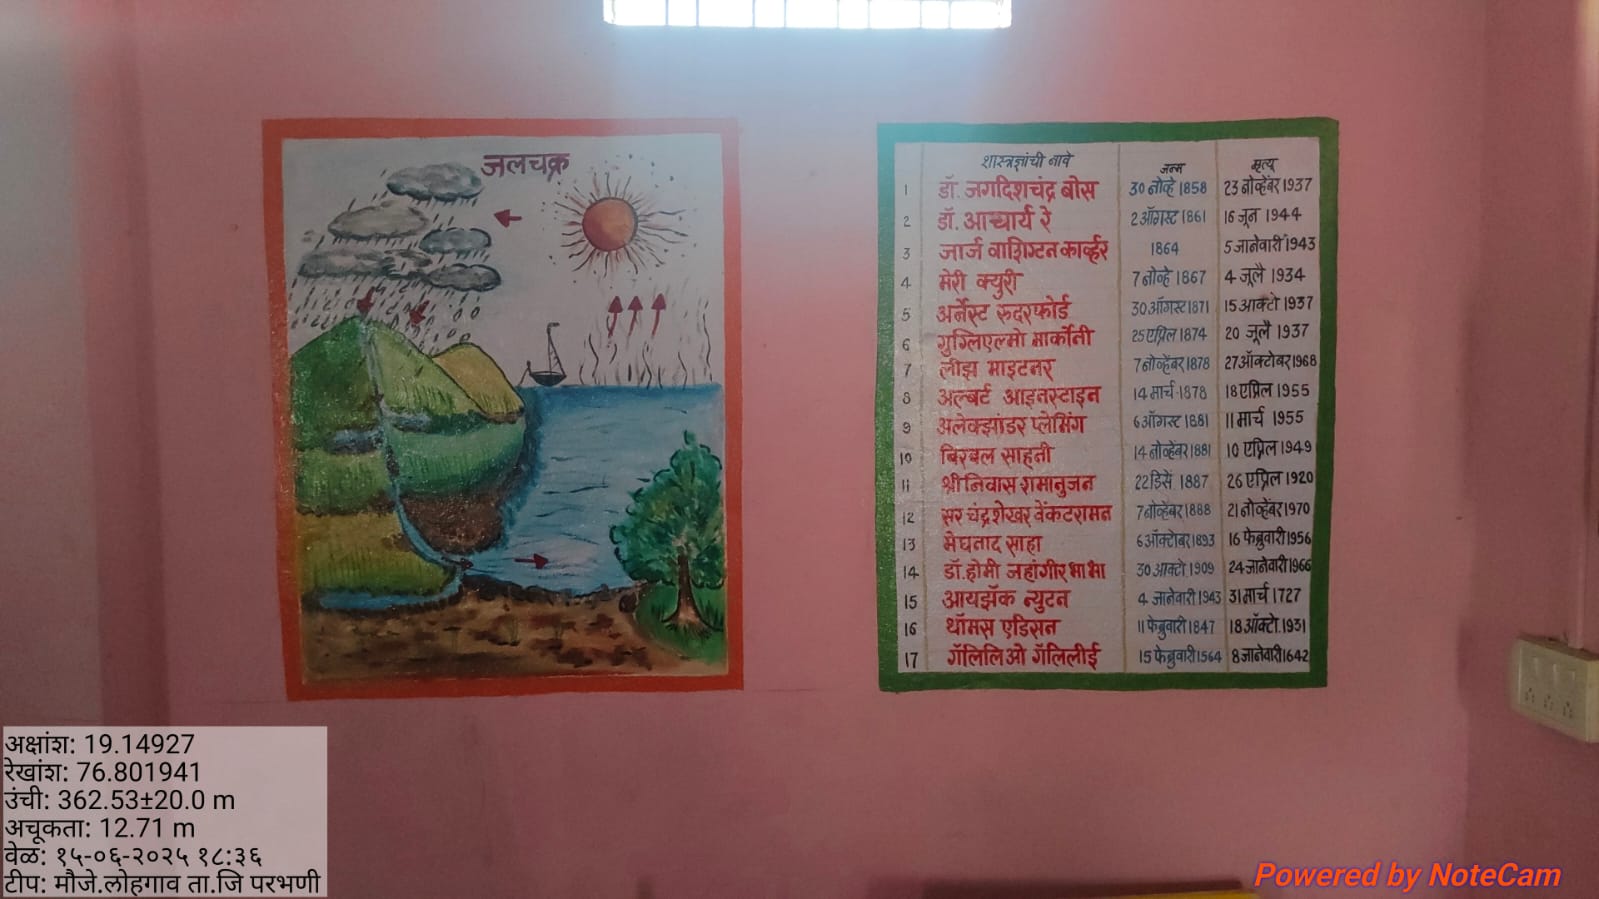 जलचक्र
शास्त्रज्ञांची नावे जन्म मृत्यू
1 डॉ. जगदिशचंद्र बोस 30 नोव्हे 1858 23 नोव्हेंबर 1937
2 डॉ. आचार्य रे 2 ऑगस्ट 1861 16 जून 1944
3 जार्ज वाशिंग्टन कार्व्हर 1864 5 जानेवारी 1943
4 मेरी क्युरी 7 नोव्हे 1867 4 जूलै 1934
5 अर्नेस्ट रुदरफोर्ड 30 ऑगस्ट 1871 15 आक्टो 1937
6 गुग्लिएल्मो मार्कोनी 25 एप्रिल 1874 20 जूलै 1937
7 लीझ माइटनर 7 नोव्हेंबर 1878 27 ऑक्टोबर 1968
8 अल्बर्ट आइनस्टाइन 14 मार्च 1878 18 एप्रिल 1955
9 अलेक्झांडर प्लेमिंग 6 ऑगस्ट 1881 11 मार्च 1955
10 बिरबल साहनी 14 नोव्हेंबर 1881 10 एप्रिल 1949
11 श्रीनिवास रामानुजन 22 डिसें 1887 26 एप्रिल 1920
12 सर चंद्रशेखर वेंकटरामन 7 नोव्हेंबर 1888 21 नोव्हेंबर 1970
13 मेघनाद साहा 6 ऑक्टोबर 1893 16 फेब्रुवारी 1956
14 डॉ. होमी जहांगीर भाभा 30 आक्टो 1909 24 जानेवारी 1966
15 आयझॅक न्युटन 4 जानेवारी 1943 31 मार्च 1727
16 थॉमस एडिसन 11 फेब्रुवारी 1847 18 ऑक्टो 1931
17 गॅलिलिओ गॅलिलीई 15 फेब्रुवारी 1564 8 जानेवारी 1642
अक्षांश: 19.14927
रेखांश: 76.801941
उंची: 362.53±20.0 m
अचूकता: 12.71 m
वेळ: १५-०६-२०२५ १८:३६
टीप: मौजे.लोहगाव ता.जि परभणी
Powered by NoteCam